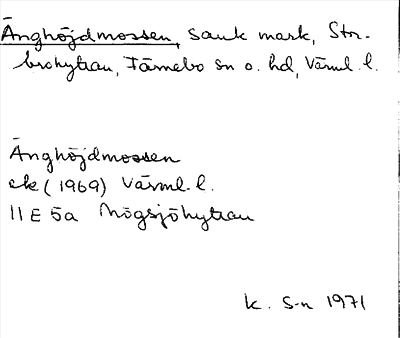 Änghöjdmossen, sank mark, Stor-
brohyttan, Färnebo sn o. hd, Värml. l.
Änghöjdmossen
ek (1969) Värml. l.
11 E 5a Högsjöhyttan
K. S-n 1971